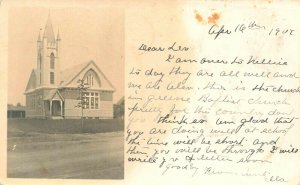 Apr 14th 1907
Dear Lev
I am over to Nellies
to day they are all well and
me also. this is the church
in Greene Baptist church
Think so am glad that
you are doing well at school
the time will be short and
then you will be through I will
write you a letter soon
Goodby From Aunt Ella